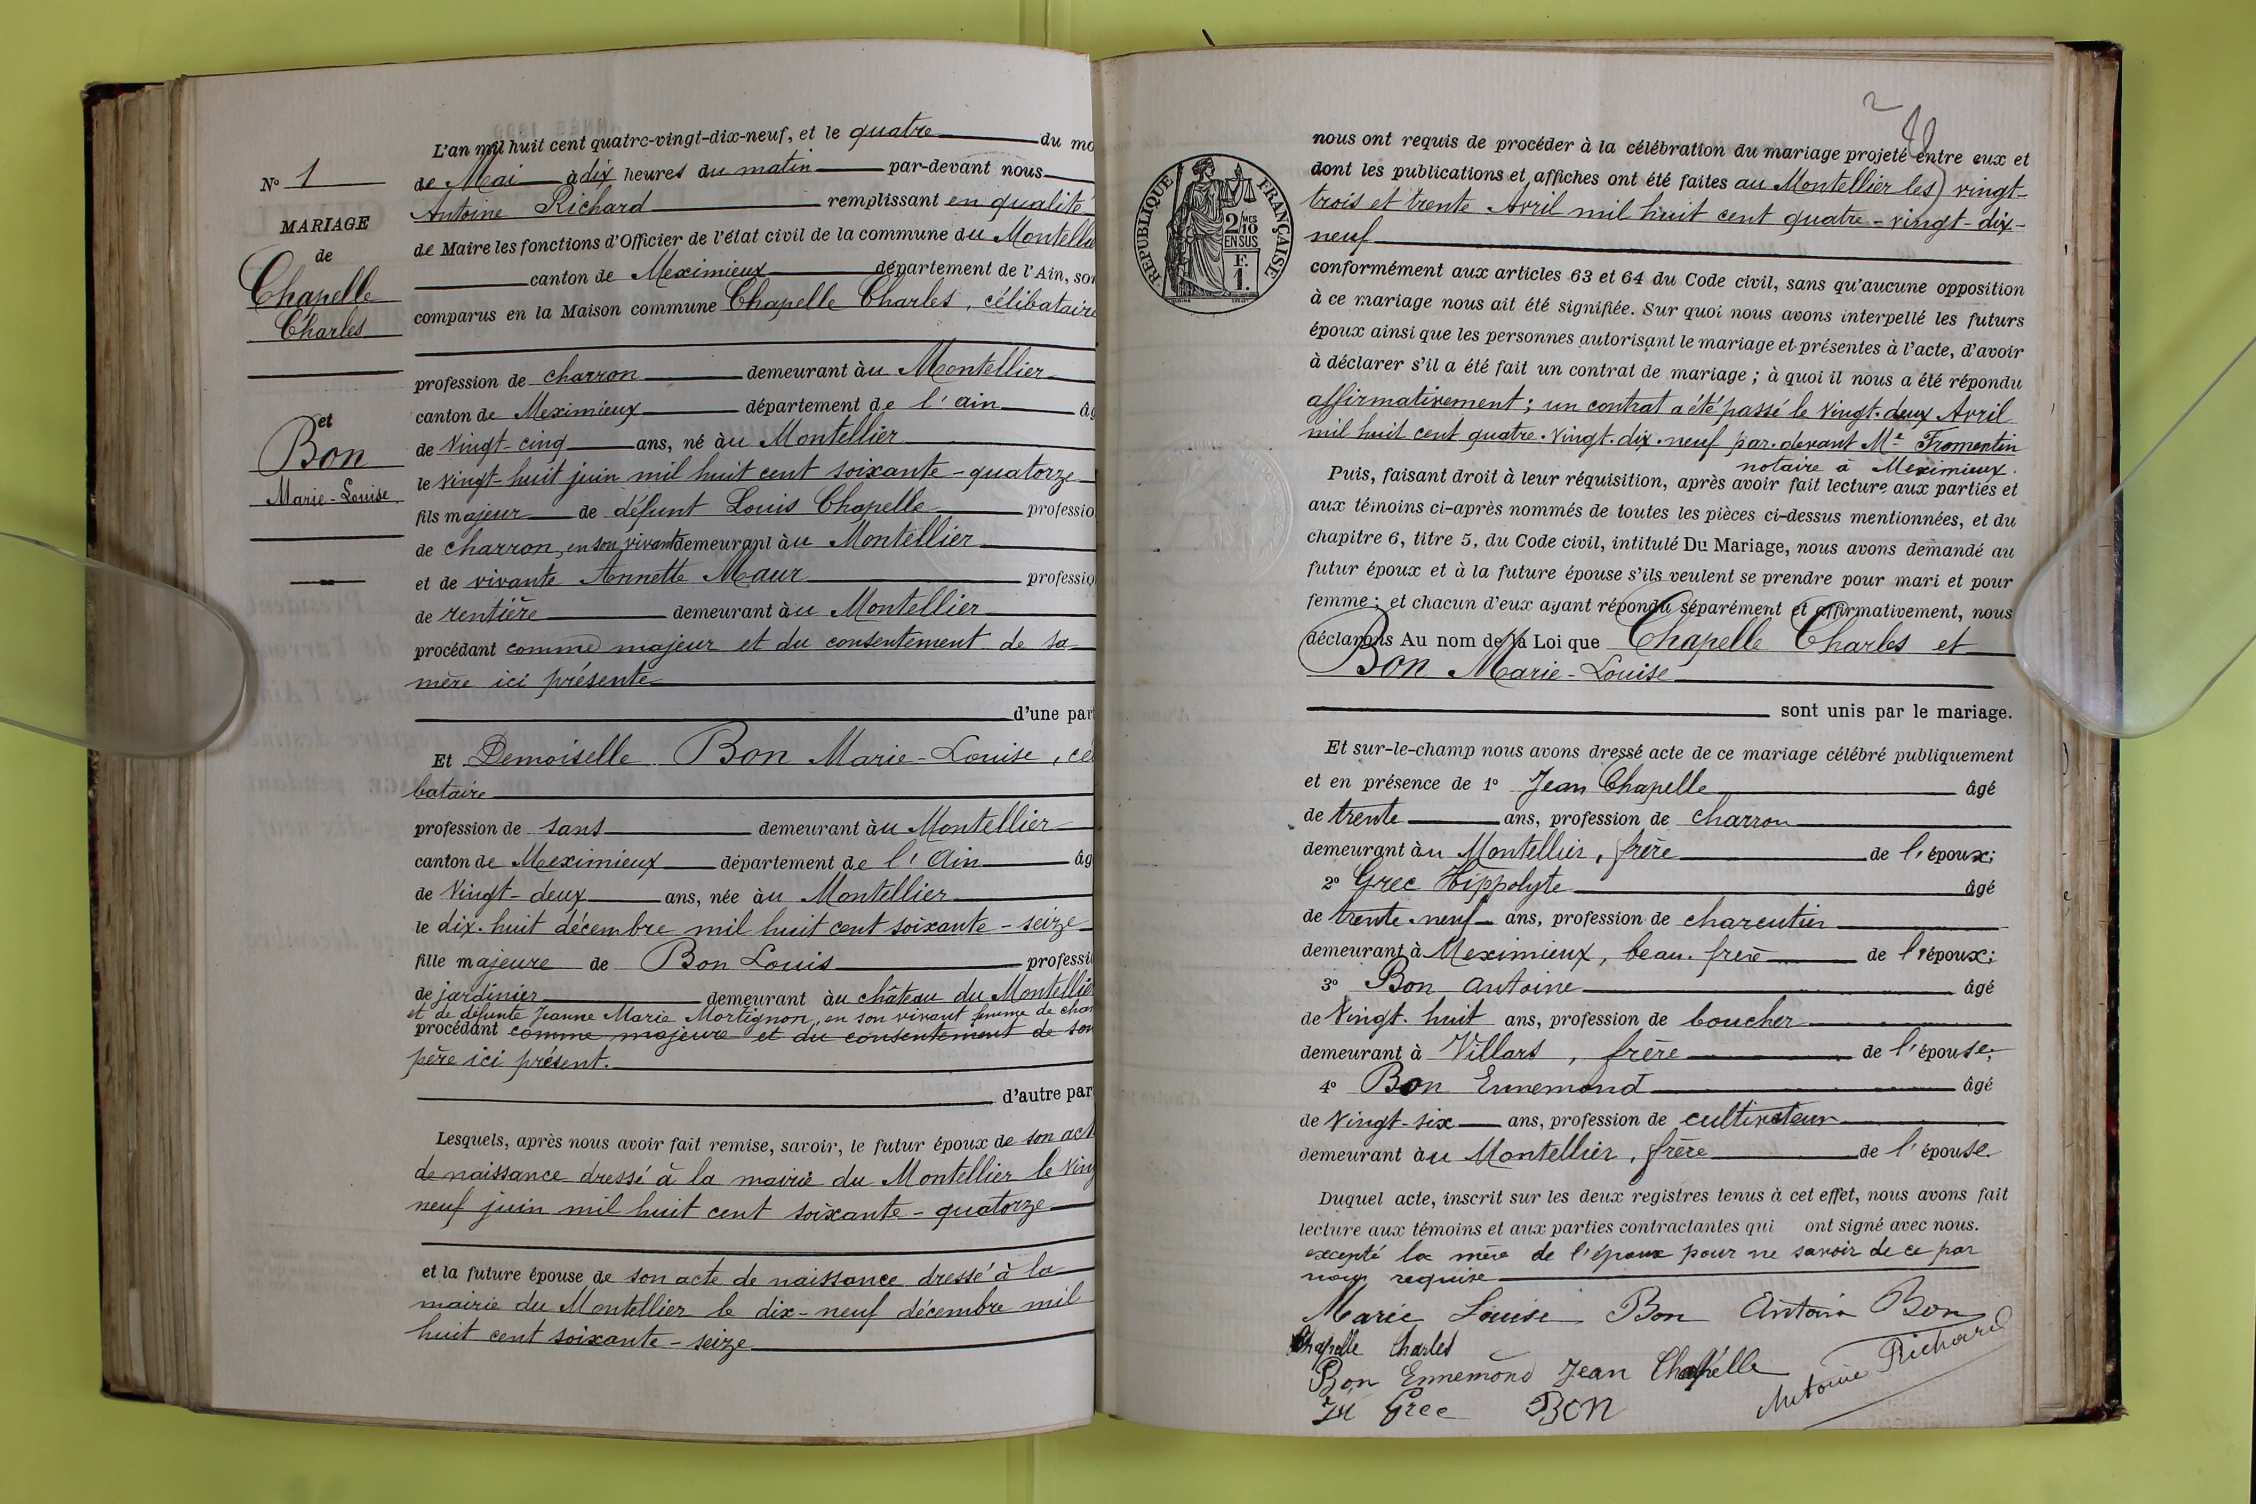 L'an mil huit cent quatre-vingt-dix-neuf, et le quatre du mo
de Mai à dix heures du matin par-devant nous
Antoine Richard remplissant en qualité
de Maire les fonctions d'Officier de l'état civil de la commune du Montellie
canton de Meximieux département de l'Ain, son
comparus en la Maison commune Chapelle Charles, célibataire
profession de charron demeurant àu Montellier
canton de Meximieux département de l'ain âg
de vingt-cinq ans, né àu Montellier
le vingt-huit juin mil huit cent soixante-quatorze
fils majeur de défunt Louis Chapelle professio
de charron, en son vivant demeurant àu Montellier
et de vivante Annette Maur professio
de rentière demeurant àu Montellier
procédant comme majeur et du consentement de sa
mère ici présente
d'une part
Et Demoiselle Bon Marie-Louise, cél
bataire
profession de sans demeurant àu Montellier
canton de Meximieux département de l'Ain âg
de vingt-deux ans, née àu Montellier
le dix-huit décembre mil huit cent soixante-seize
fille majeure de Bon Louis professi
de jardinier demeurant àu château du Montellier
et de défunte Jeanne Marie Mortignon, en son vivant femme de char
procédant comme majeure et du consentement de son
père ici présent.
d'autre par
Lesquels, après nous avoir fait remise, savoir, le futur époux de son act
de naissance dressé à la mairie du Montellier le ving
neuf juin mil huit cent soixante-quatorze
et la future épouse de son acte de naissance dressé à la
mairie du Montellier le dix-neuf décembre mil
huit cent soixante-seize
No 1
MARIAGE
de
Chapelle
Charles
et
Bon
Marie-Louise
2
RÉPUBLIQUE FRANÇAISE
2/10 MES
EN SUS
F.
1.
nous ont requis de procéder à la célébration du mariage projeté entre eux et
dont les publications et affiches ont été faites au Montellier les vingt-
trois et trente Avril mil huit cent quatre-vingt-dix-
neuf
conformément aux articles 63 et 64 du Code civil, sans qu'aucune opposition
à ce mariage nous ait été signifiée. Sur quoi nous avons interpellé les futurs
époux ainsi que les personnes autorisant le mariage et présentes à l'acte, d'avoir
à déclarer s'il a été fait un contrat de mariage ; à quoi il nous a été répondu
affirmativement ; un contrat a été passé le vingt-deux Avril
mil huit cent quatre-vingt-dix-neuf par-devant Me Fromentin
notaire à Meximieux.
Puis, faisant droit à leur réquisition, après avoir fait lecture aux parties et
aux témoins ci-après nommés de toutes les pièces ci-dessus mentionnées, et du
chapitre 6, titre 5, du Code civil, intitulé Du Mariage, nous avons demandé au
futur époux et à la future épouse s'ils veulent se prendre pour mari et pour
femme ; et chacun d'eux ayant répondu séparément et affirmativement, nous
déclarons Au nom de la Loi que Chapelle Charles et
Bon Marie-Louise
sont unis par le mariage.
Et sur-le-champ nous avons dressé acte de ce mariage célébré publiquement
et en présence de 1º Jean Chapelle âgé
de trente ans, profession de charron
demeurant àu Montellier, frère de l'époux;
2º Grec Hippolyte âgé
de trente-neuf ans, profession de charcutier
demeurant à Meximieux, beau-frère de l'époux;
3º Bon Antoine âgé
de vingt-huit ans, profession de boucher
demeurant à Villars, frère de l'épouse;
4º Bon Ennemond âgé
de vingt-six ans, profession de cultivateur
demeurant àu Montellier, frère de l'épouse.
Duquel acte, inscrit sur les deux registres tenus à cet effet, nous avons fait
lecture aux témoins et aux parties contractantes qui ont signé avec nous.
excepté la mère de l'époux pour ne savoir de ce par
nous requise
Marie Louise Bon Antoin Bon
Chapelle Charles
Bon Ennemond Jean Chapelle Antoine Richard
Grec BON